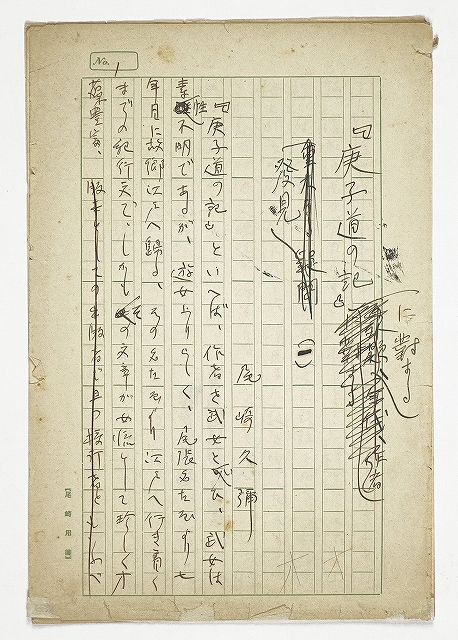 No. 1
『庚子道の記』に對する
作者
「發見」
(一)
尾崎久彌
『庚子道の記』といへば、作者を武女と 武女は
素性不明であるが、遊女上りらしく、尾張名古屋より七
年目に故郷江戸へ歸る、その名古屋より江戸へ行き着く
までの紀行文で、しかもその文章が女流として珍しく才
藻豊富、版本としての出版者で且つ校訂者ともいふべ
【尾崎用箋】